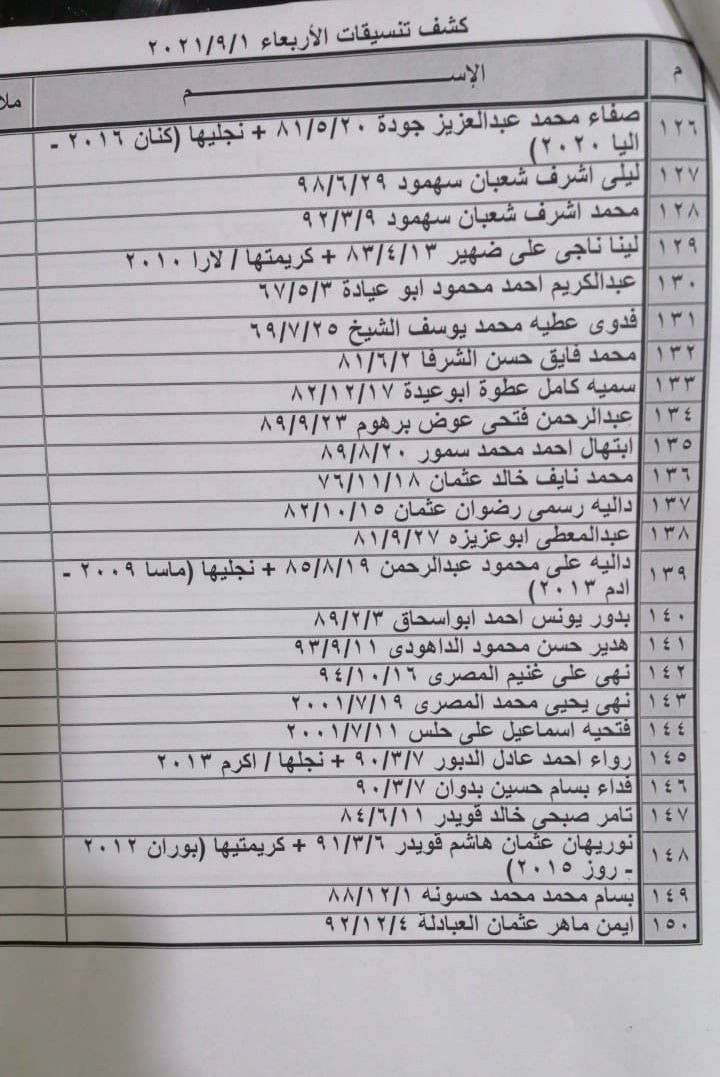 كشف تنسيقات الأربعاء ٢٠٢١/٩/١
م الإســـــــــــــــــم
١٢٦ صفاء محمد عبدالعزيز جودة ٨١/٥/٢٠ + نجليها (كنان ٢٠١٦ -
اليا ٢٠٢٠)
١٢٧ ليلى اشرف شعبان سهمود ٩٨/٦/٢٩
١٢٨ محمد اشرف شعبان سهمود ٩٢/٣/٩
١٢٩ لينا ناجى على ضهير ٨٣/٤/١٣ + كريمتها / لارا ٢٠١٠
١٣٠ عبدالكريم احمد محمود ابو عيادة ٦٧/٥/٣
١٣١ فدوى عطيه محمد يوسف الشيخ ٦٩/٧/٢٥
١٣٢ محمد فايق حسن الشرفا ٨١/٦/٢
١٣٣ سميه كامل عطوة ابوعيدة ٨٢/١٢/١٧
١٣٤ عبدالرحمن فتحى عوض برهوم ٨٩/٩/٢٣
١٣٥ ابتهال احمد محمد سمور ٨٩/٨/٢٠
١٣٦ محمد نايف خالد عثمان ٧٦/١١/١٨
١٣٧ داليه رسمى رضوان عثمان ٨٢/١٠/١٥
١٣٨ عبدالمعطى ابوعزيزه ٨١/٩/٢٧
١٣٩ داليه على محمود عبدالرحمن ٨٥/٨/١٩ + نجليها (ماسا ٢٠٠٩ -
ادم ٢٠١٣)
١٤٠ بدور يونس احمد ابواسحاق ٨٩/٢/٣
١٤١ هدير حسن محمود الداهودى ٩٣/٩/١١
١٤٢ نهى على غنيم المصرى ٩٤/١٠/١٦
١٤٣ نهى يحيى محمد المصرى ٢٠٠١/٧/١٩
١٤٤ فتحيه اسماعيل على حلس ٢٠٠١/٧/١١
١٤٥ رواء احمد عادل الدبور ٩٠/٣/٧ + نجلها / اكرم ٢٠١٣
١٤٦ فداء بسام حسين بدوان ٩٠/٣/٧
١٤٧ تامر صبحى خالد قويدر ٨٤/٦/١١
١٤٨ نوريهان عثمان هاشم قويدر ٩١/٣/٦ + كريمتيها (بوران ٢٠١٢
- روز ٢٠١٥)
١٤٩ بسام محمد محمد حسونه ٨٨/١٢/١
١٥٠ ايمن ماهر عثمان العبادلة ٩٢/١٢/٤